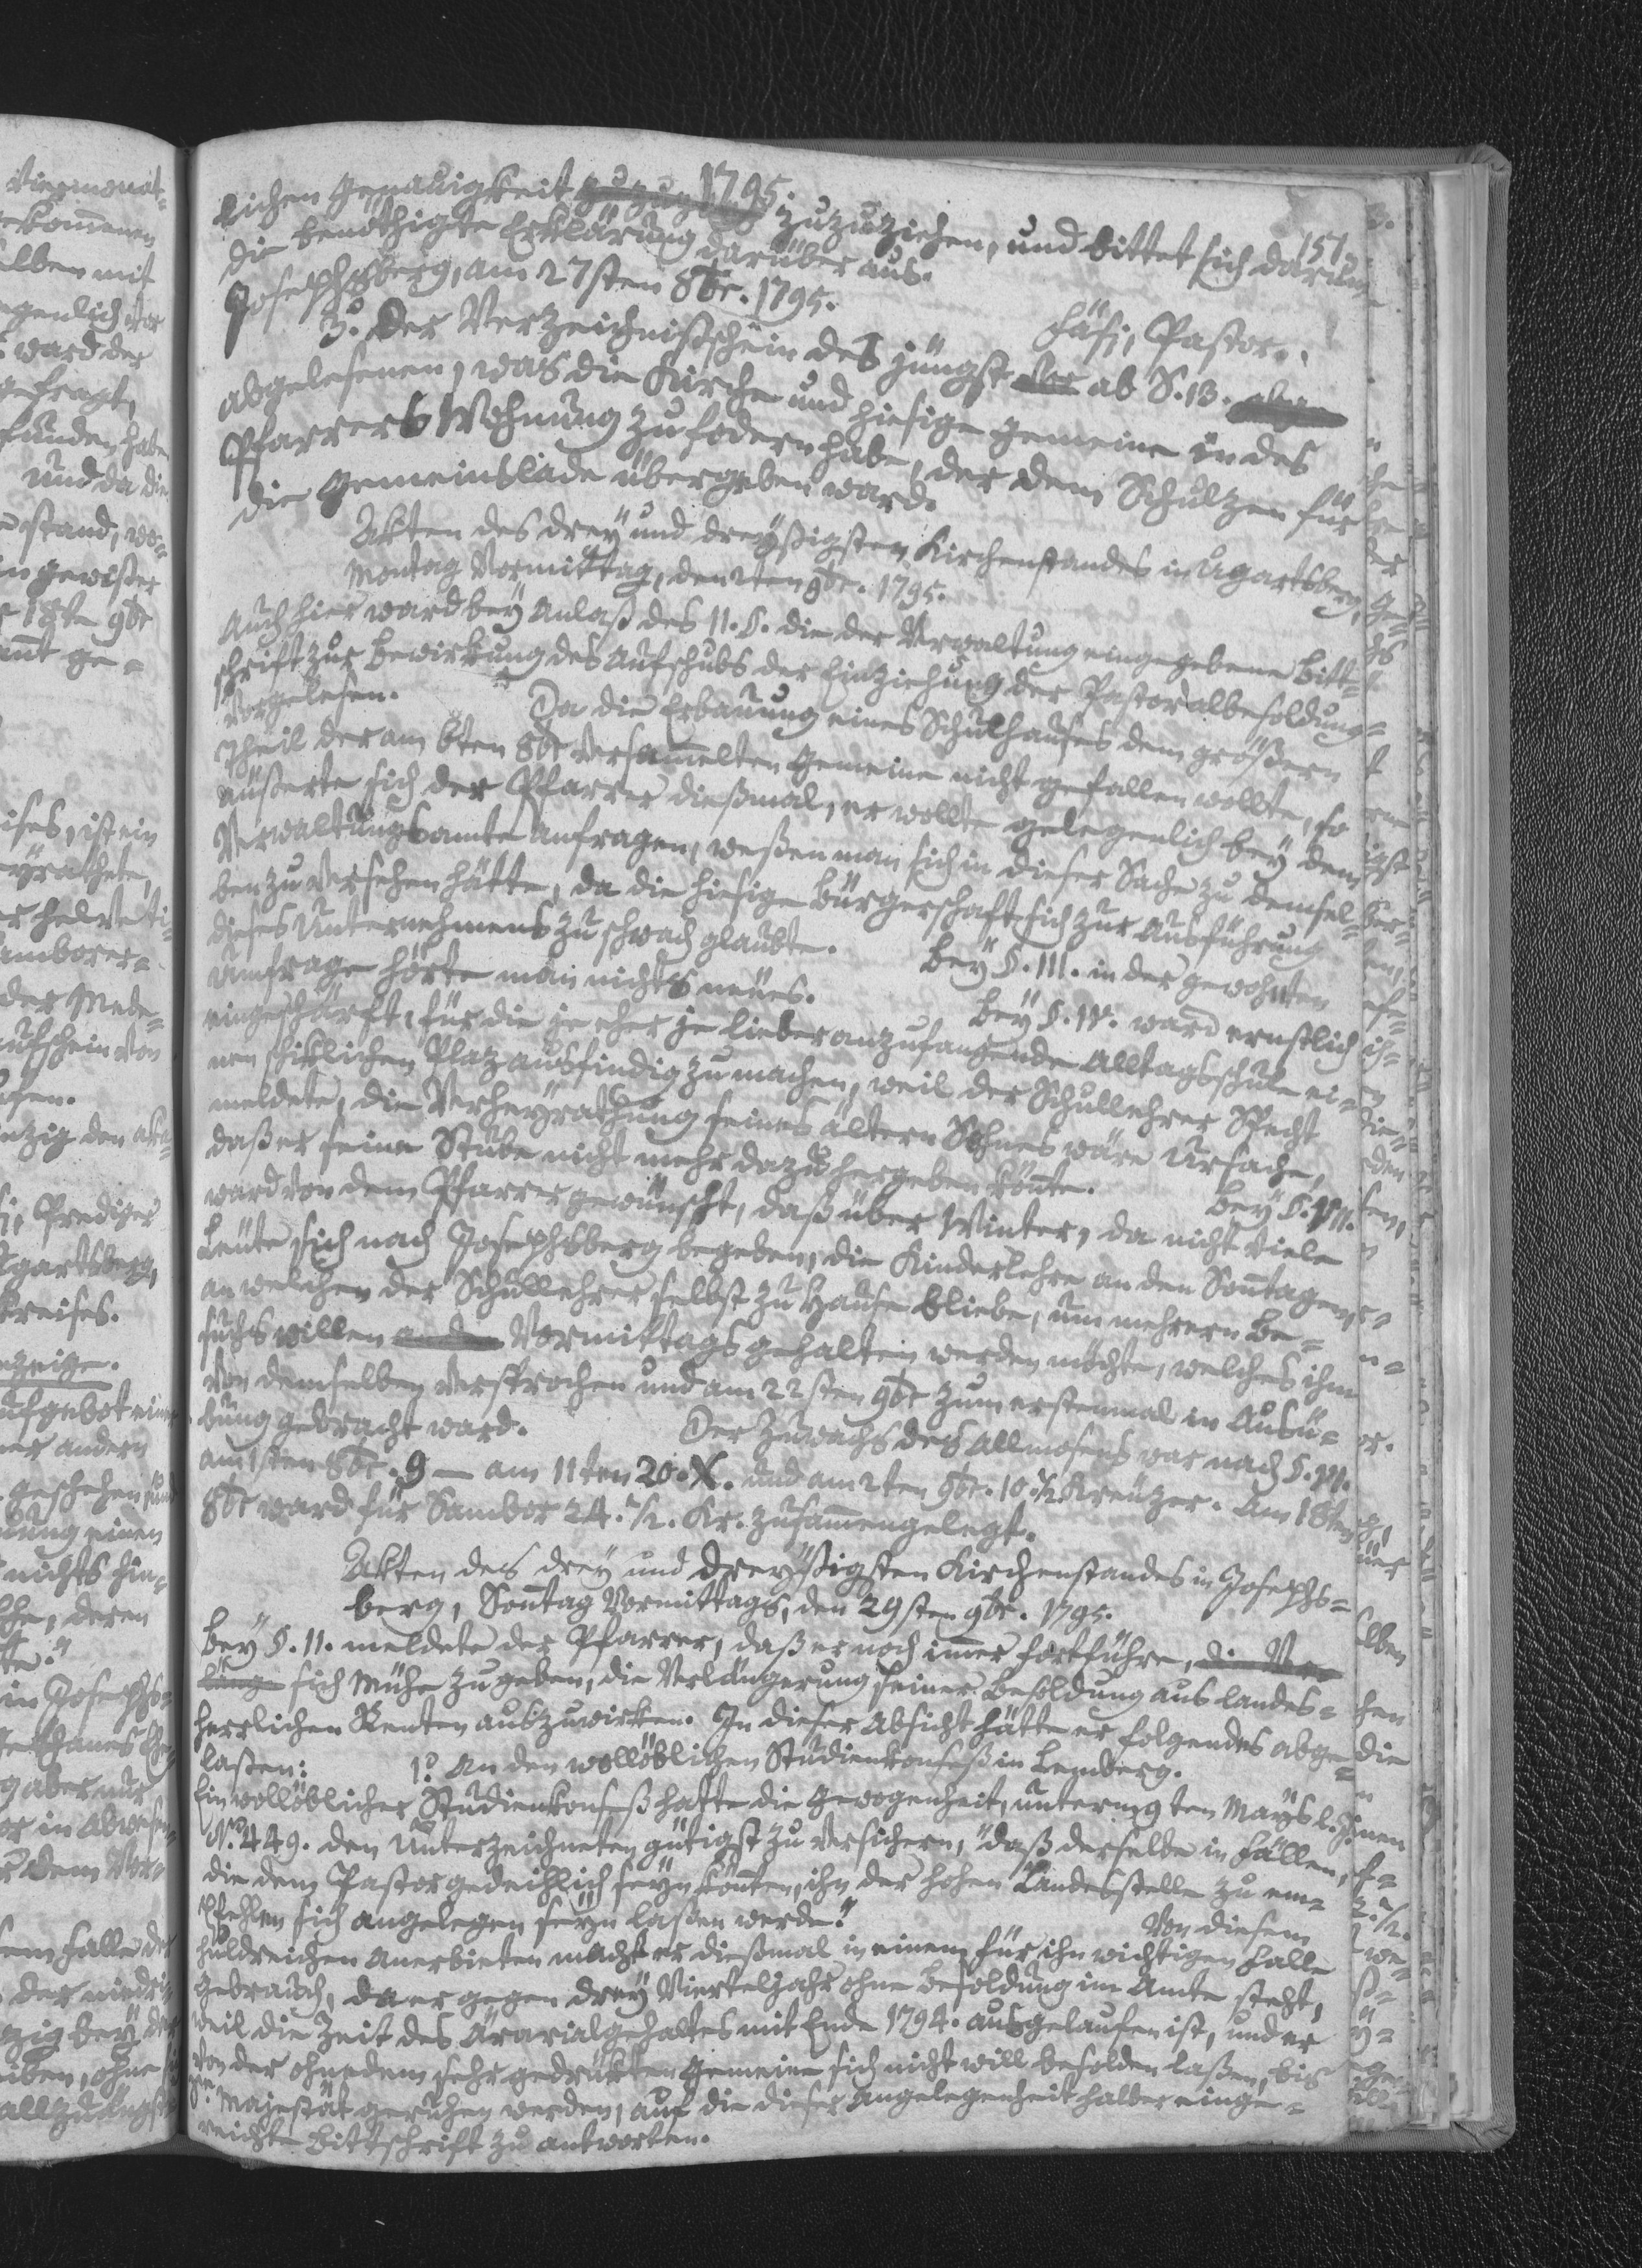 1795.
151.
lichen Genauigkeit zuzuziehen, und bittet sich darüber
die benöthigte Erklärung darüber aus.
Josephsberg, am 27sten 8br. 1795.
Fäsi, Pastor.
3.º Der Verzeichnißschein des jüngst ab S. 13.
abgelesenen, was die Kirche und hiesige Gemeine in des
Pfarrers Wohnung zu fodern habe, der dem Schulzen für
die Gemeinslade übergeben ward.
Akten des drey und dreyßigsten Kirchenstandes in Ugartsberg,
Montag Vormittag, den 2ten 9br. 1795.
Auch hier ward bey Anlaß des 11. §. die der Verwaltung eingegebene Bitt-
schrift zur Bewirkung des Aufschubs der Einziehung der Pastoralbesoldung
vorgelesen. Da die Erbauung eines Schulhauses dem größern
Theil der am 6ten 8br versam̄elten Gemeine nicht gefallen wollte, so
äußerte sich der Pfarrer dießmal, er wollte gelegenlich bey dem
Verwaltungsamte anfragen, weßen man sich in dieser Sache zu demsel-
ben zu versehen hätte, da die hiesige Bürgerschaft sich zur Ausführung
dieses Unternehmens zu schwach glaubte. Bey §. III. in der gewohnten
Umfrage hörte man nichts neues. Bey §. IV. ward ernstlich
eingeschärft, für die je eher je lieber anzufangende Alltagsschule ei-
nen schiklichen Plaz ausfindig zu machen, weil der Schullehrer Specht
meldete, die Verheyrathung seines ältern Sohnes wäre Ursache,
daß er seine Stube nicht mehr dazu hergeben kön̄te. Bey §. VII.
ward von dem Pfarrer gewünscht, daß über Winter, da nicht viele
Leute sich nach Josephsberg begeben, die Kinderlehre an den Son̄tagen,
an welchen der Schullehrer selbst zu Hause bliebe, um mehrern Be-
suchs willen Vormittags gehalten werden möchte, welches ihm
von demselben versprochen und am 22sten 9br zum erstenmal in Ausü-
bung gebracht ward. Der Zuwachs des Allmosens war nach §. VI.
am 1sten 8br. 9 — am 11ten 20. X. und am 2ten 9br. 10. ½ Kreuzer. Am 18ten
8br ward für Sambor 24. ½. Kr. zusam̄engelegt.
Akten des drey und dreyßigsten Kirchenstandes in Josephs-
berg, Son̄tag Vormittags, den 29sten 9br. 1795.
Bey §. 11. meldete der Pfarrer, daß er noch im̄er fortführe, die Ver-
länge sich Mühe zu geben, die Verlängerung seiner Besoldung aus landes-
herrlichen Renten auszuwirken. In dieser Absicht hätte er folgendes abge-
laßen: 1.º An den wollöblichen Studienkonseß in Lemberg.
Ein wollöblicher Studienkonseß hatte die Gewogenheit, unterm 9ten Mays l. J.
N.º 449. den Unterzeichneten gütigst zu versichern, "daß derselbe in Fällen,
die dem Pastor gedeihlich seyn kön̄ten, ihn der hohen Landesstelle zu em-
pfehlen sich angelegen seyn laßen werde." Von diesem
huldreichen Anerbieten macht er dießmal in einem für ihn wichtigen Falle
Gebrauch, da er gegen drey Vierteljahr ohne Besoldung im Amte steht,
weil die Zeit des Ärarialgehaltes mit Ende 1794. ausgelaufen ist, und er
von der ohnedem sehr gedrükten Gemeine sich nicht will besolden laßen, bis
Se. Majestät geruhen werden, auf die dieser Angelegenheit halber einge-
reichte Bittschrift zu antworten.